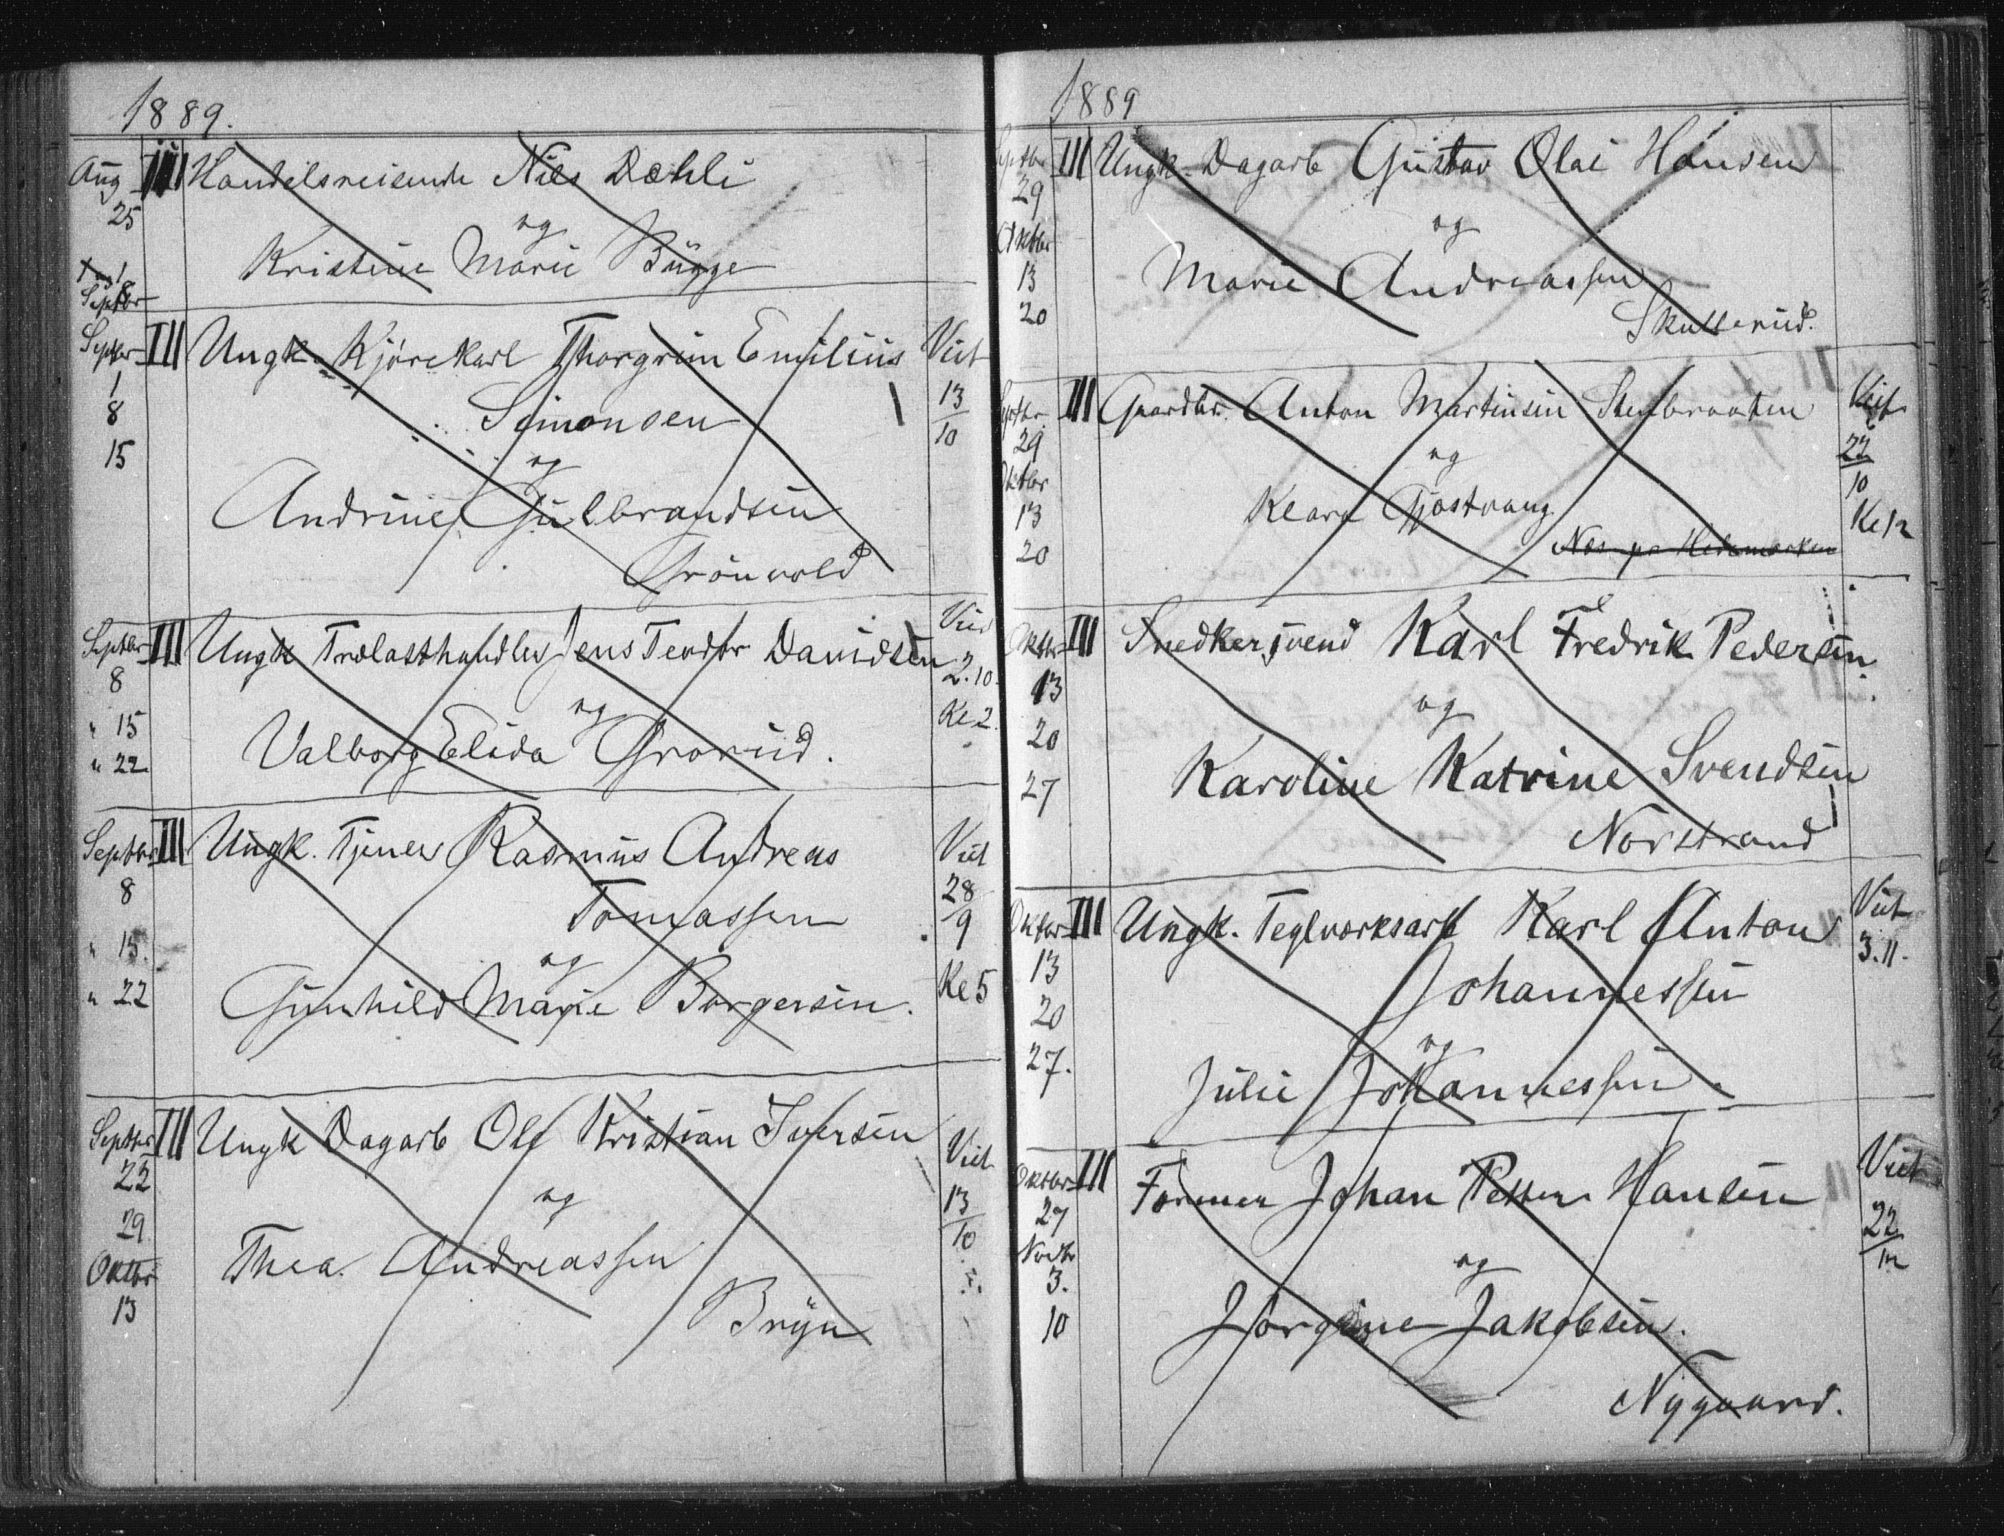 1889.
Aug III Handelsreisende Nils Dæhli
25
og
Kristine Marie Bügge
1 og 8
Septbr
Septbr III Ungk. Kjørekarl Thorgrim Emilius Viet
1
8 Simonsen 13
10
15 og
Andrine Gulbrandsen
Grönvold
Septbr III Ungk Trælasthandler Jens Teodor Davidsen Viet
8 2.10.
" 15 og Ke 2
" 22 Valborg Elida Grorud.
Septbr III Ungk. Tjener Rasmus Andreas Viet
8 Tomassen 28
9
" 15. og
" 22 Gunhild Marie Borgersen. Ke 5
Septbr III Ungk Dagarb Ole Kristian Iversen Viet
22
29 og 13
10
Oktbr Thea Andreassen
13 Bryn
1889
Septbr III Ungk. Dagarb Gustav Olai Hansen
29
Oktbr og
13 Marie Andreassen
20 Skullerud.
Septbr III Gaardbr. Anton Martinsen Stenbraaten Viet
29 og 22
Oktbr 10
13 Klara Gjøstvang Ke 12
20 Næs pr Hedemarken
Oktbr III Snedkersvend Karl Fredrik Pedersen
13
20 og
27 Karoline Katrine Svendsen
Norstrand
Oktbr III Ungk. Teglværksarb Karl Anton Viet
13 Johannessen 3.11.
20 og
27. Julie Johannessen.
Oktbr III Former Johan Petter Hansen Viet
27
Novbr og 22
3. 12
10 Jørgine Jakobsen.
Nygaard.